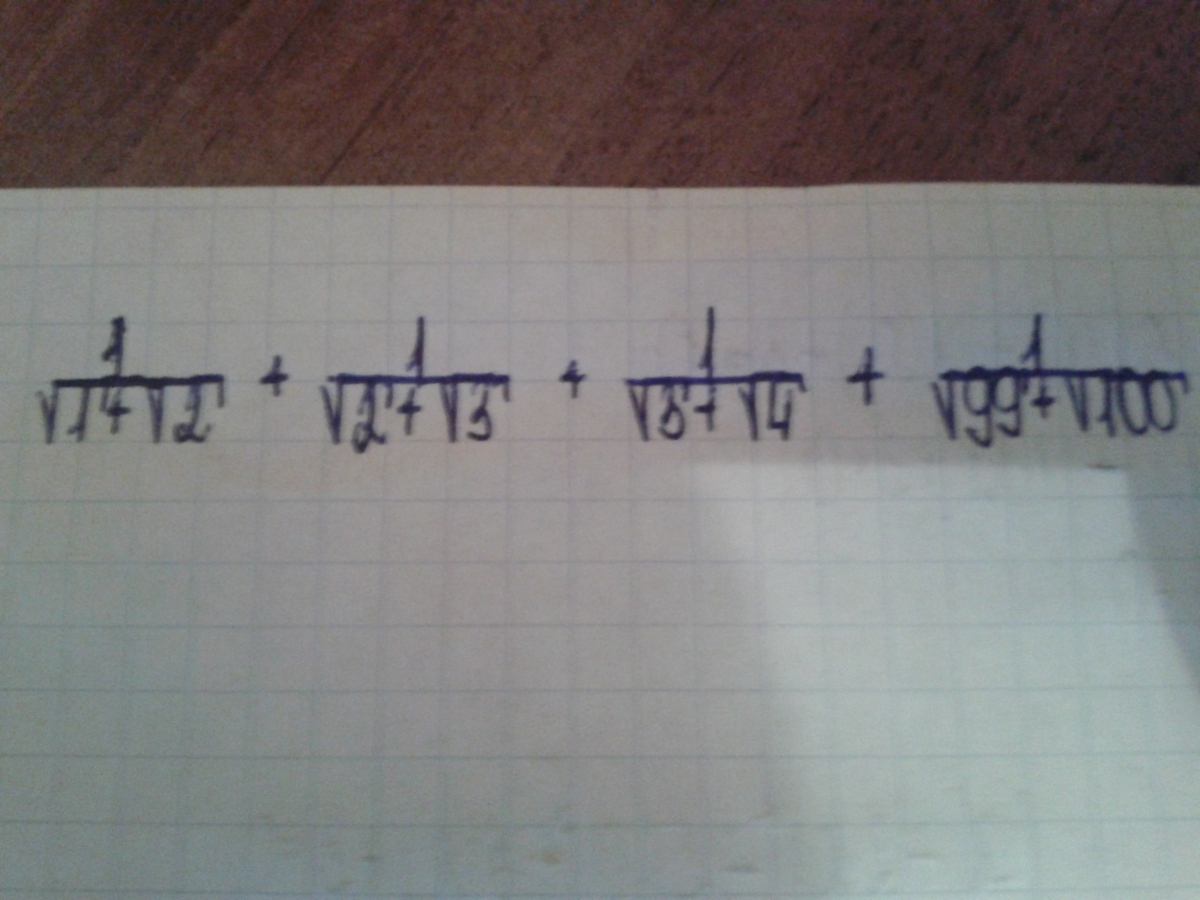 1/(√1+√2) + 1/(√2+√3) + 1/(√3+√4) + 1/(√99+√100)